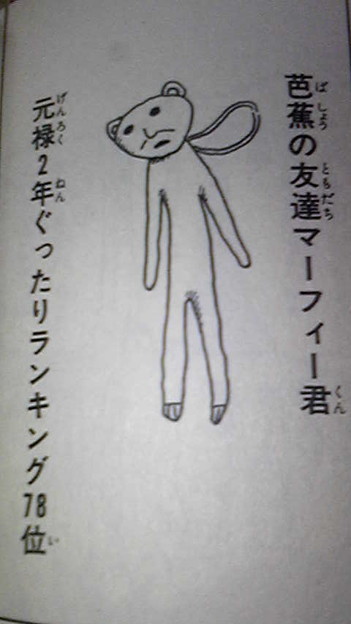 芭蕉の友達マーフィー君
元禄2年ぐったりランキング78位